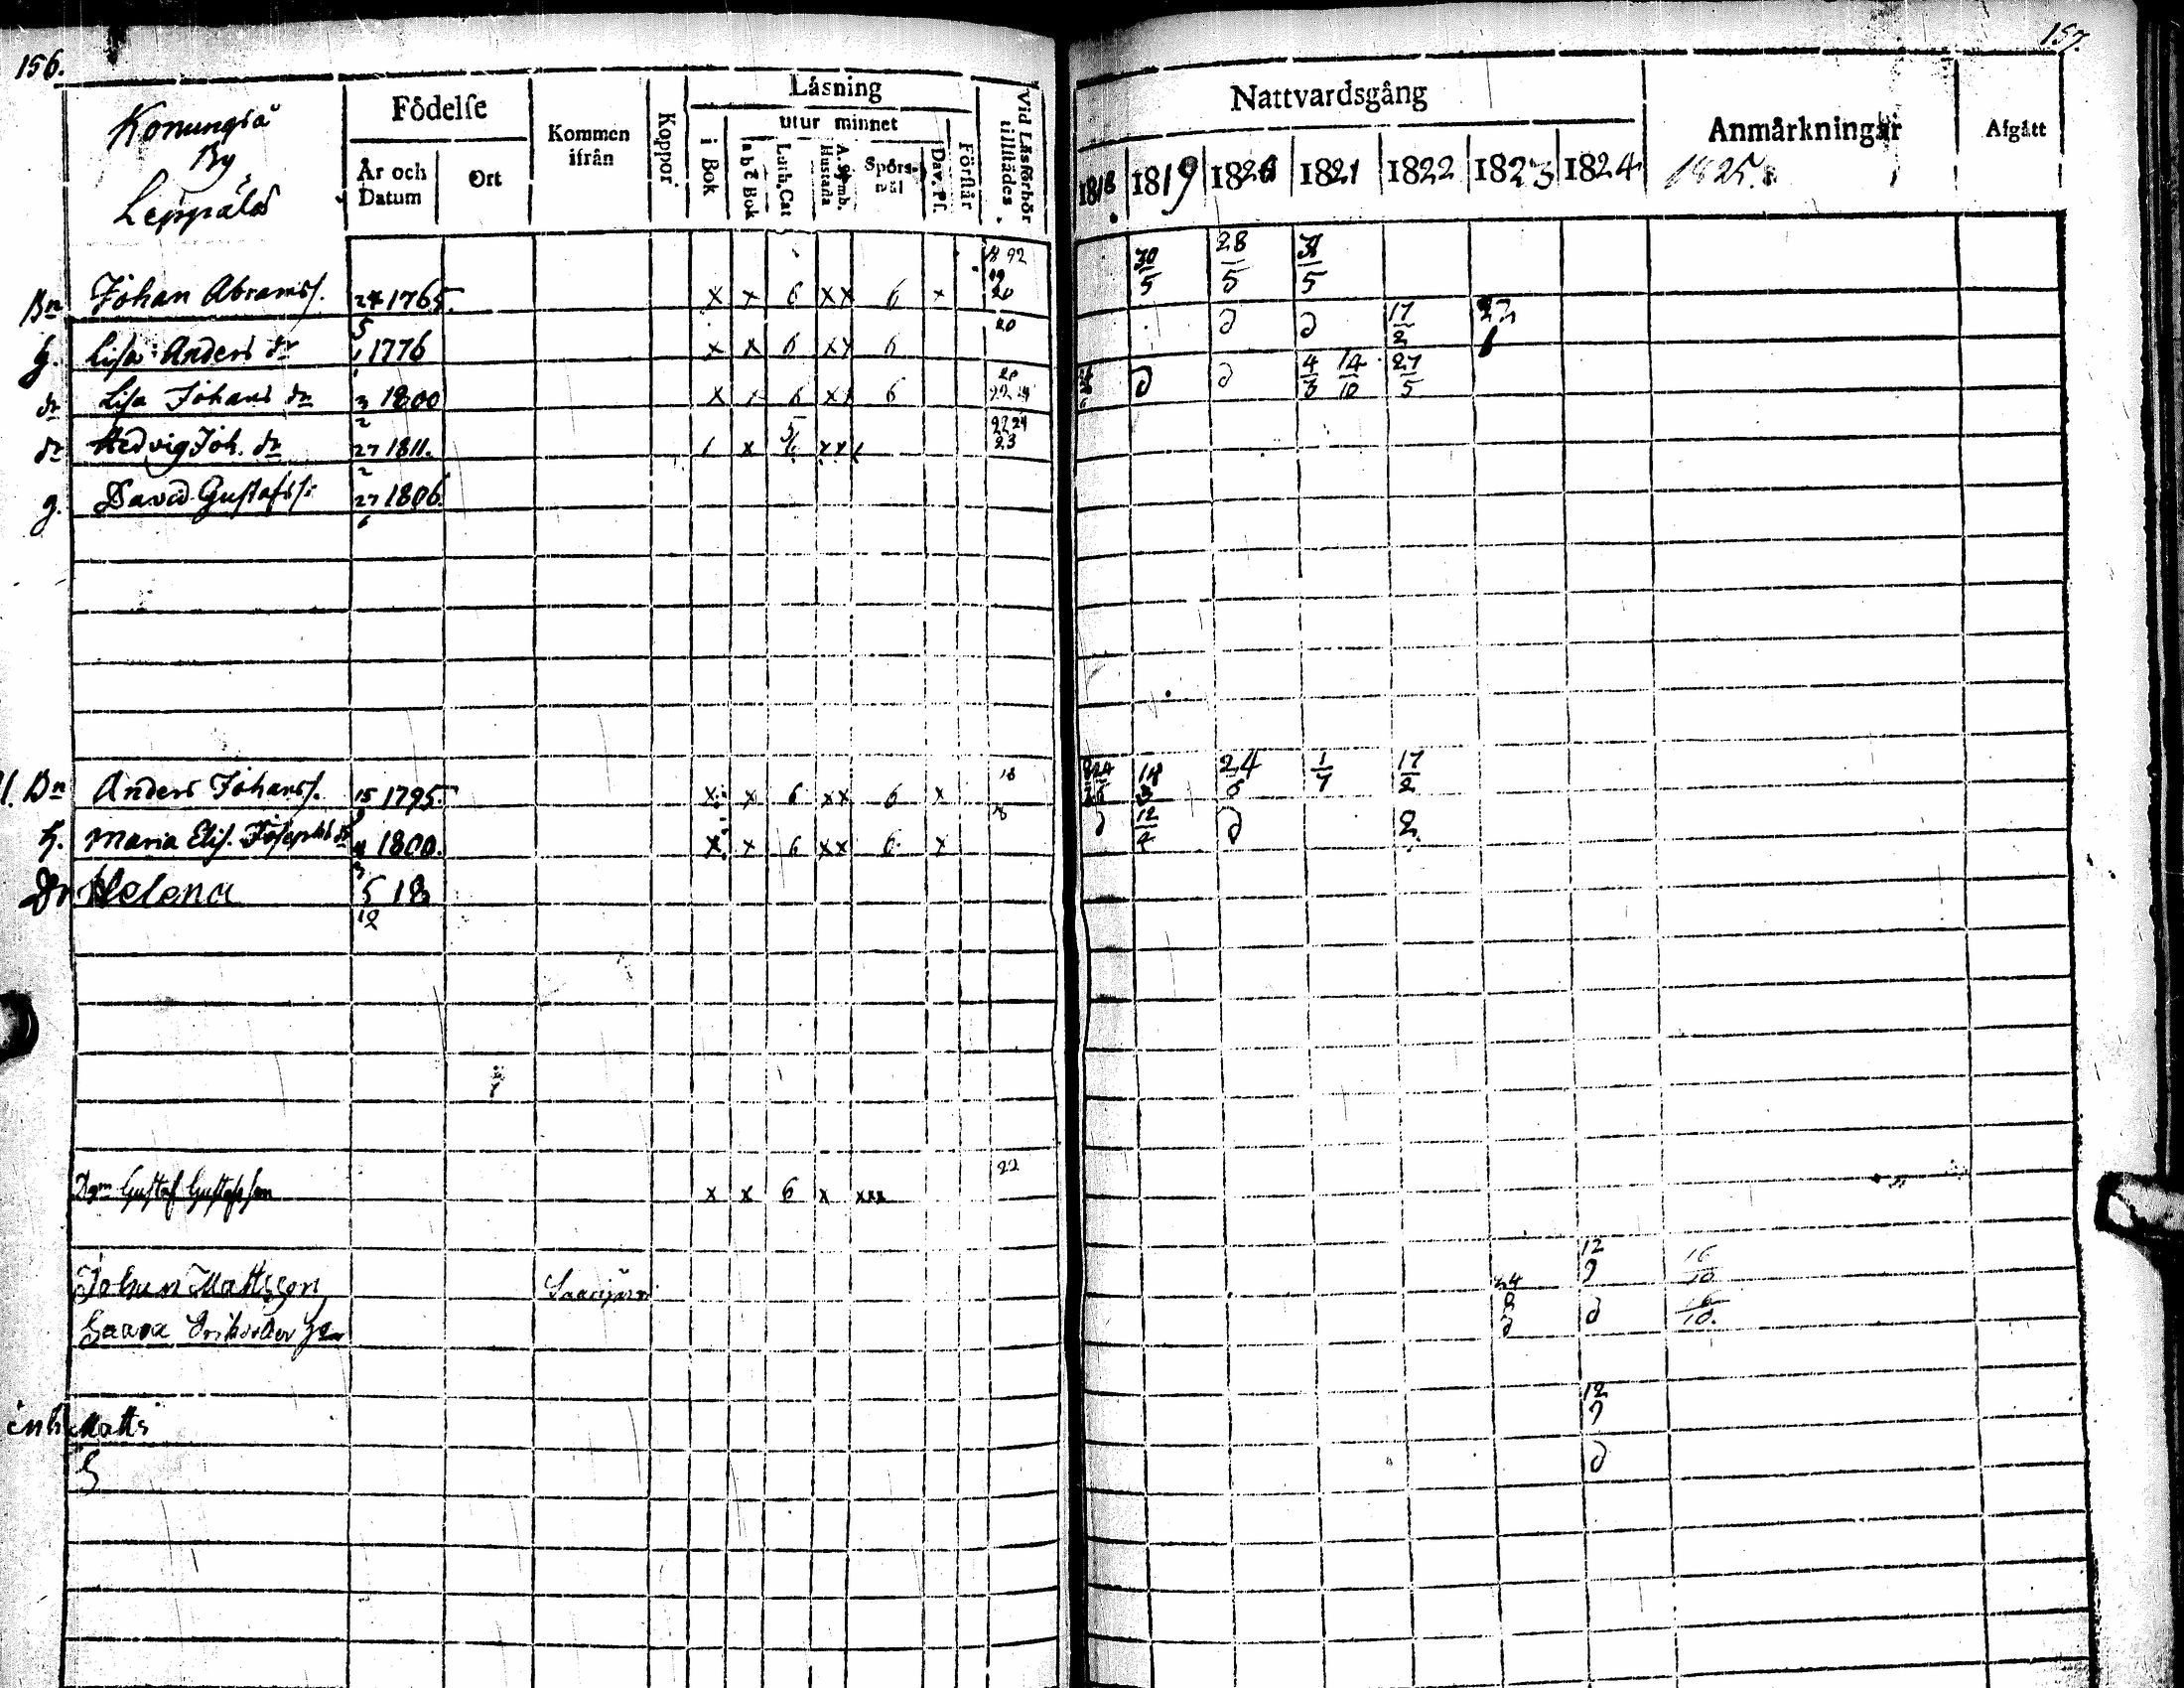 156.
157.
Konungså
By
Leppälä
Födelse
År och Datum
Ort
Kommen ifrån
Koppor
Läsning
i Bok
utur minnet
a b c Bok
Luth. Cat
A. Symb. Hustafla
Spörsmål
Dav. Ps.
Förstår
Vid Läsförhör tillstädes
Nattvardsgång
1818 1819 1820 1821 1822 1823 1824
Anmärkningar
1825.
Afgått
Bn Johan Abramss. 24/5 1765. x x 6 xx 6 x 20 30/5 28/5 /5
h. Lisa Anders dr 1776 x x 6 xx 6 20 d d 17/2
dr Lisa Johans dr 3/2 1800 x x 6 xx 6 20 d d 4/3 14/10 27/5
dr Hedvig Joh. dr 27/2 1811. x xx 22 24 23
g. David Gustafss. 27/6 1806.
Bn Anders Johanss. 15 1795. x x 6 xx 6 x 18 24/6 1/7 17/2
h. Maria Elis. Josephs dr 1800. x x 6 xx 6 x d 12/4 d
Dr Helena 5/12 18
Gustaf Gustafsson x x 6 x xxx 22
Johan Mattsson Saarijärvi 24/8 12/9 16/10
Eriksder d 16/10.
inh Matts 12/9
d